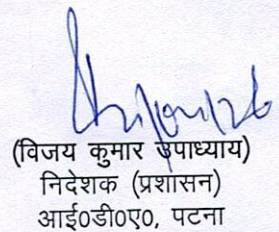 (विजय कुमार उपाध्याय)
निदेशक (प्रशासन)
आई०डी०ए०, पटना